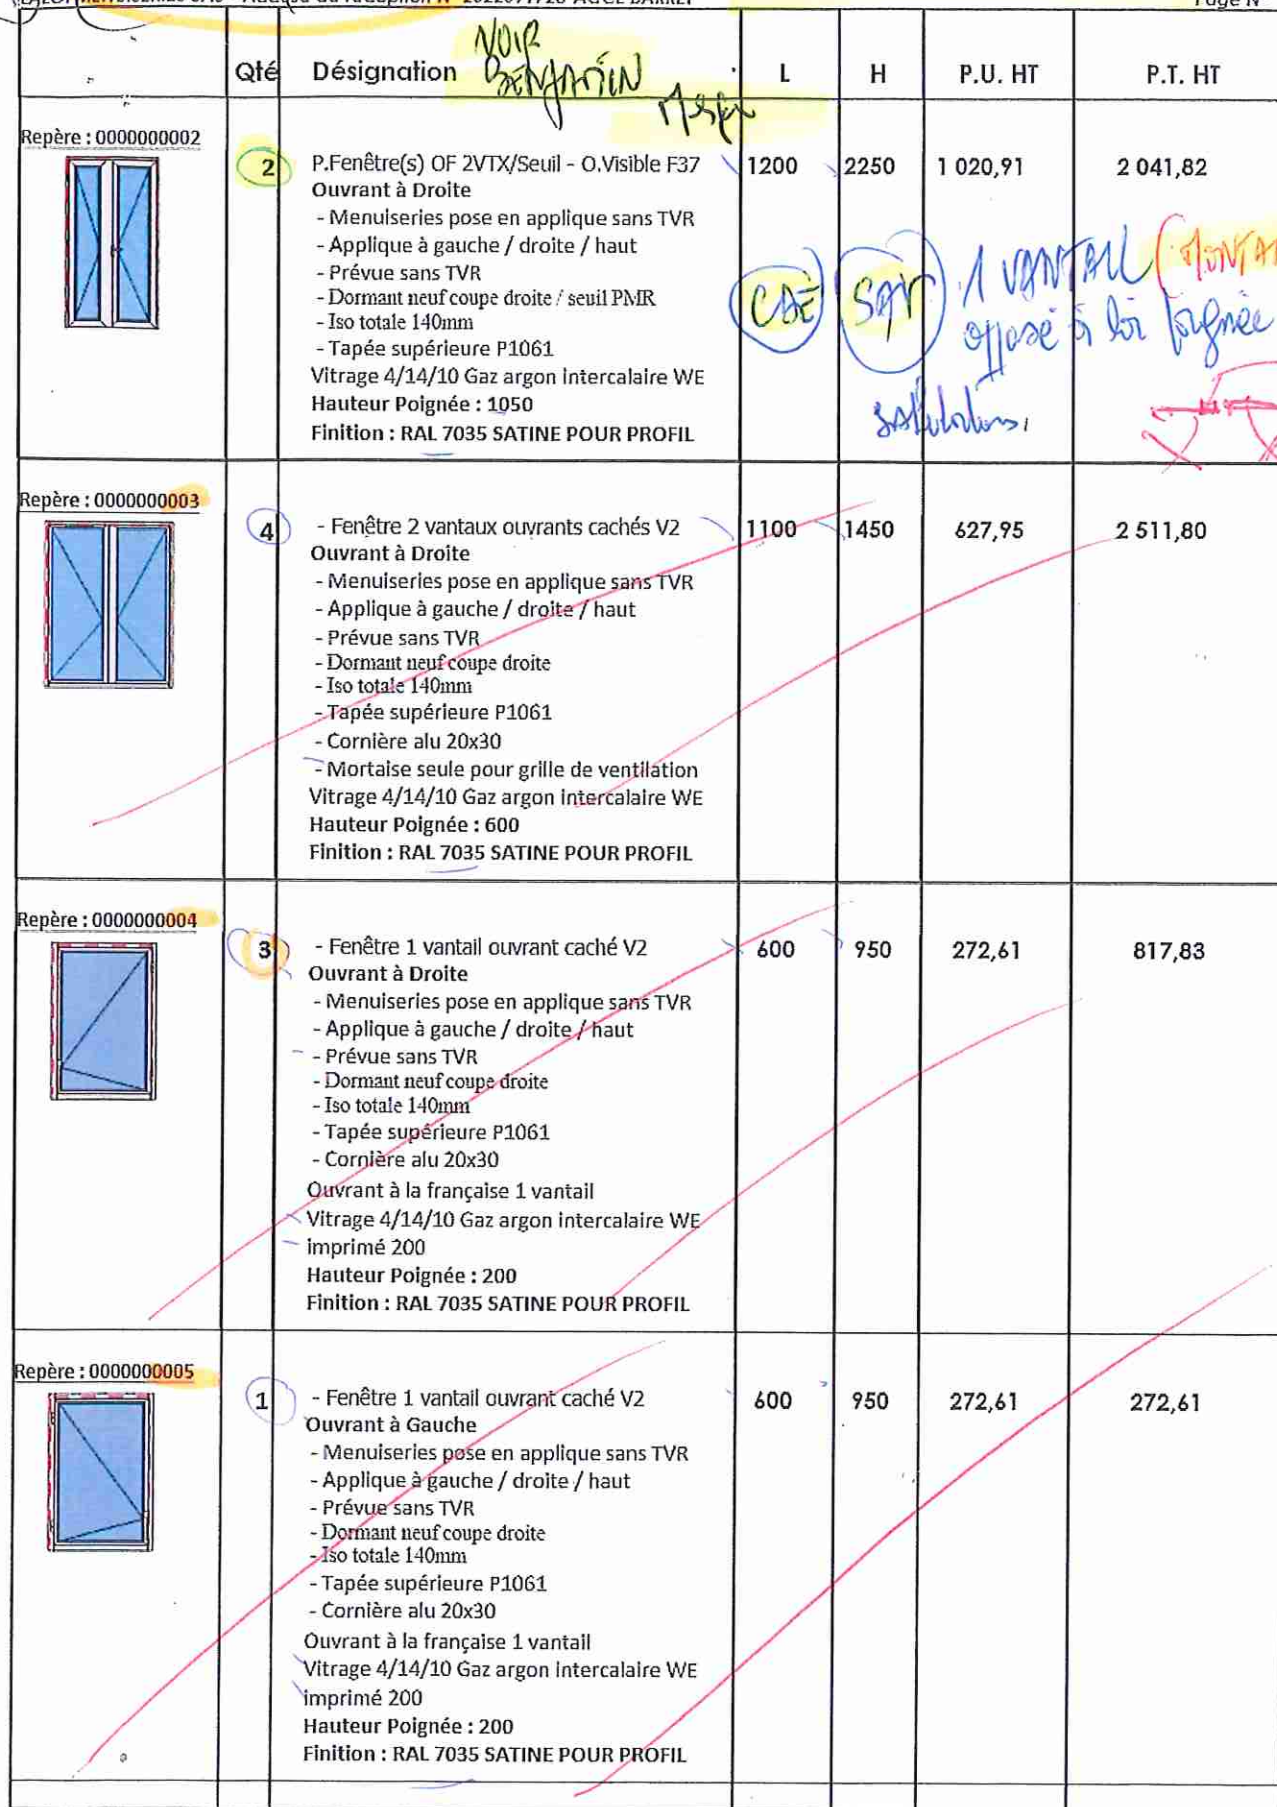 Page N°
Qté Désignation L H P.U. HT P.T. HT
NOIR
BENJAMIN
Repère : 0000000002
2 P.Fenêtre(s) OF 2VTX/Seuil - O.Visible F37 1200 2250 1 020,91 2 041,82
Ouvrant à Droite
- Menuiseries pose en applique sans TVR
- Applique à gauche / droite / haut
- Prévue sans TVR
- Dormant neuf coupe droite / seuil PMR
- Iso totale 140mm
- Tapée supérieure P1061
Vitrage 4/14/10 Gaz argon intercalaire WE
Hauteur Poignée : 1050
Finition : RAL 7035 SATINE POUR PROFIL
SAV 1 VANTAIL
opposé à la poignée
Repère : 0000000003
4 - Fenêtre 2 vantaux ouvrants cachés V2 1100 1450 627,95 2 511,80
Ouvrant à Droite
- Menuiseries pose en applique sans TVR
- Applique à gauche / droite / haut
- Prévue sans TVR
- Dormant neuf coupe droite
- Iso totale 140mm
- Tapée supérieure P1061
- Cornière alu 20x30
- Mortaise seule pour grille de ventilation
Vitrage 4/14/10 Gaz argon intercalaire WE
Hauteur Poignée : 600
Finition : RAL 7035 SATINE POUR PROFIL
Repère : 0000000004
3 - Fenêtre 1 vantail ouvrant caché V2 600 950 272,61 817,83
Ouvrant à Droite
- Menuiseries pose en applique sans TVR
- Applique à gauche / droite / haut
- Prévue sans TVR
- Dormant neuf coupe droite
- Iso totale 140mm
- Tapée supérieure P1061
- Cornière alu 20x30
Ouvrant à la française 1 vantail
Vitrage 4/14/10 Gaz argon intercalaire WE
imprimé 200
Hauteur Poignée : 200
Finition : RAL 7035 SATINE POUR PROFIL
Repère : 0000000005
1 - Fenêtre 1 vantail ouvrant caché V2 600 950 272,61 272,61
Ouvrant à Gauche
- Menuiseries pose en applique sans TVR
- Applique à gauche / droite / haut
- Prévue sans TVR
- Dormant neuf coupe droite
- Iso totale 140mm
- Tapée supérieure P1061
- Cornière alu 20x30
Ouvrant à la française 1 vantail
Vitrage 4/14/10 Gaz argon intercalaire WE
imprimé 200
Hauteur Poignée : 200
Finition : RAL 7035 SATINE POUR PROFIL